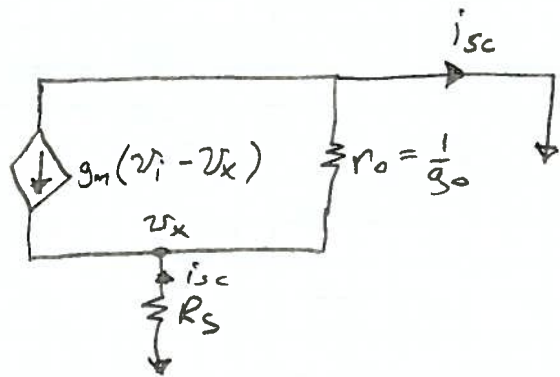 i_sc
g_m(v_i - v_x)
r_o = 1/g_o
v_x
i_sc
R_S